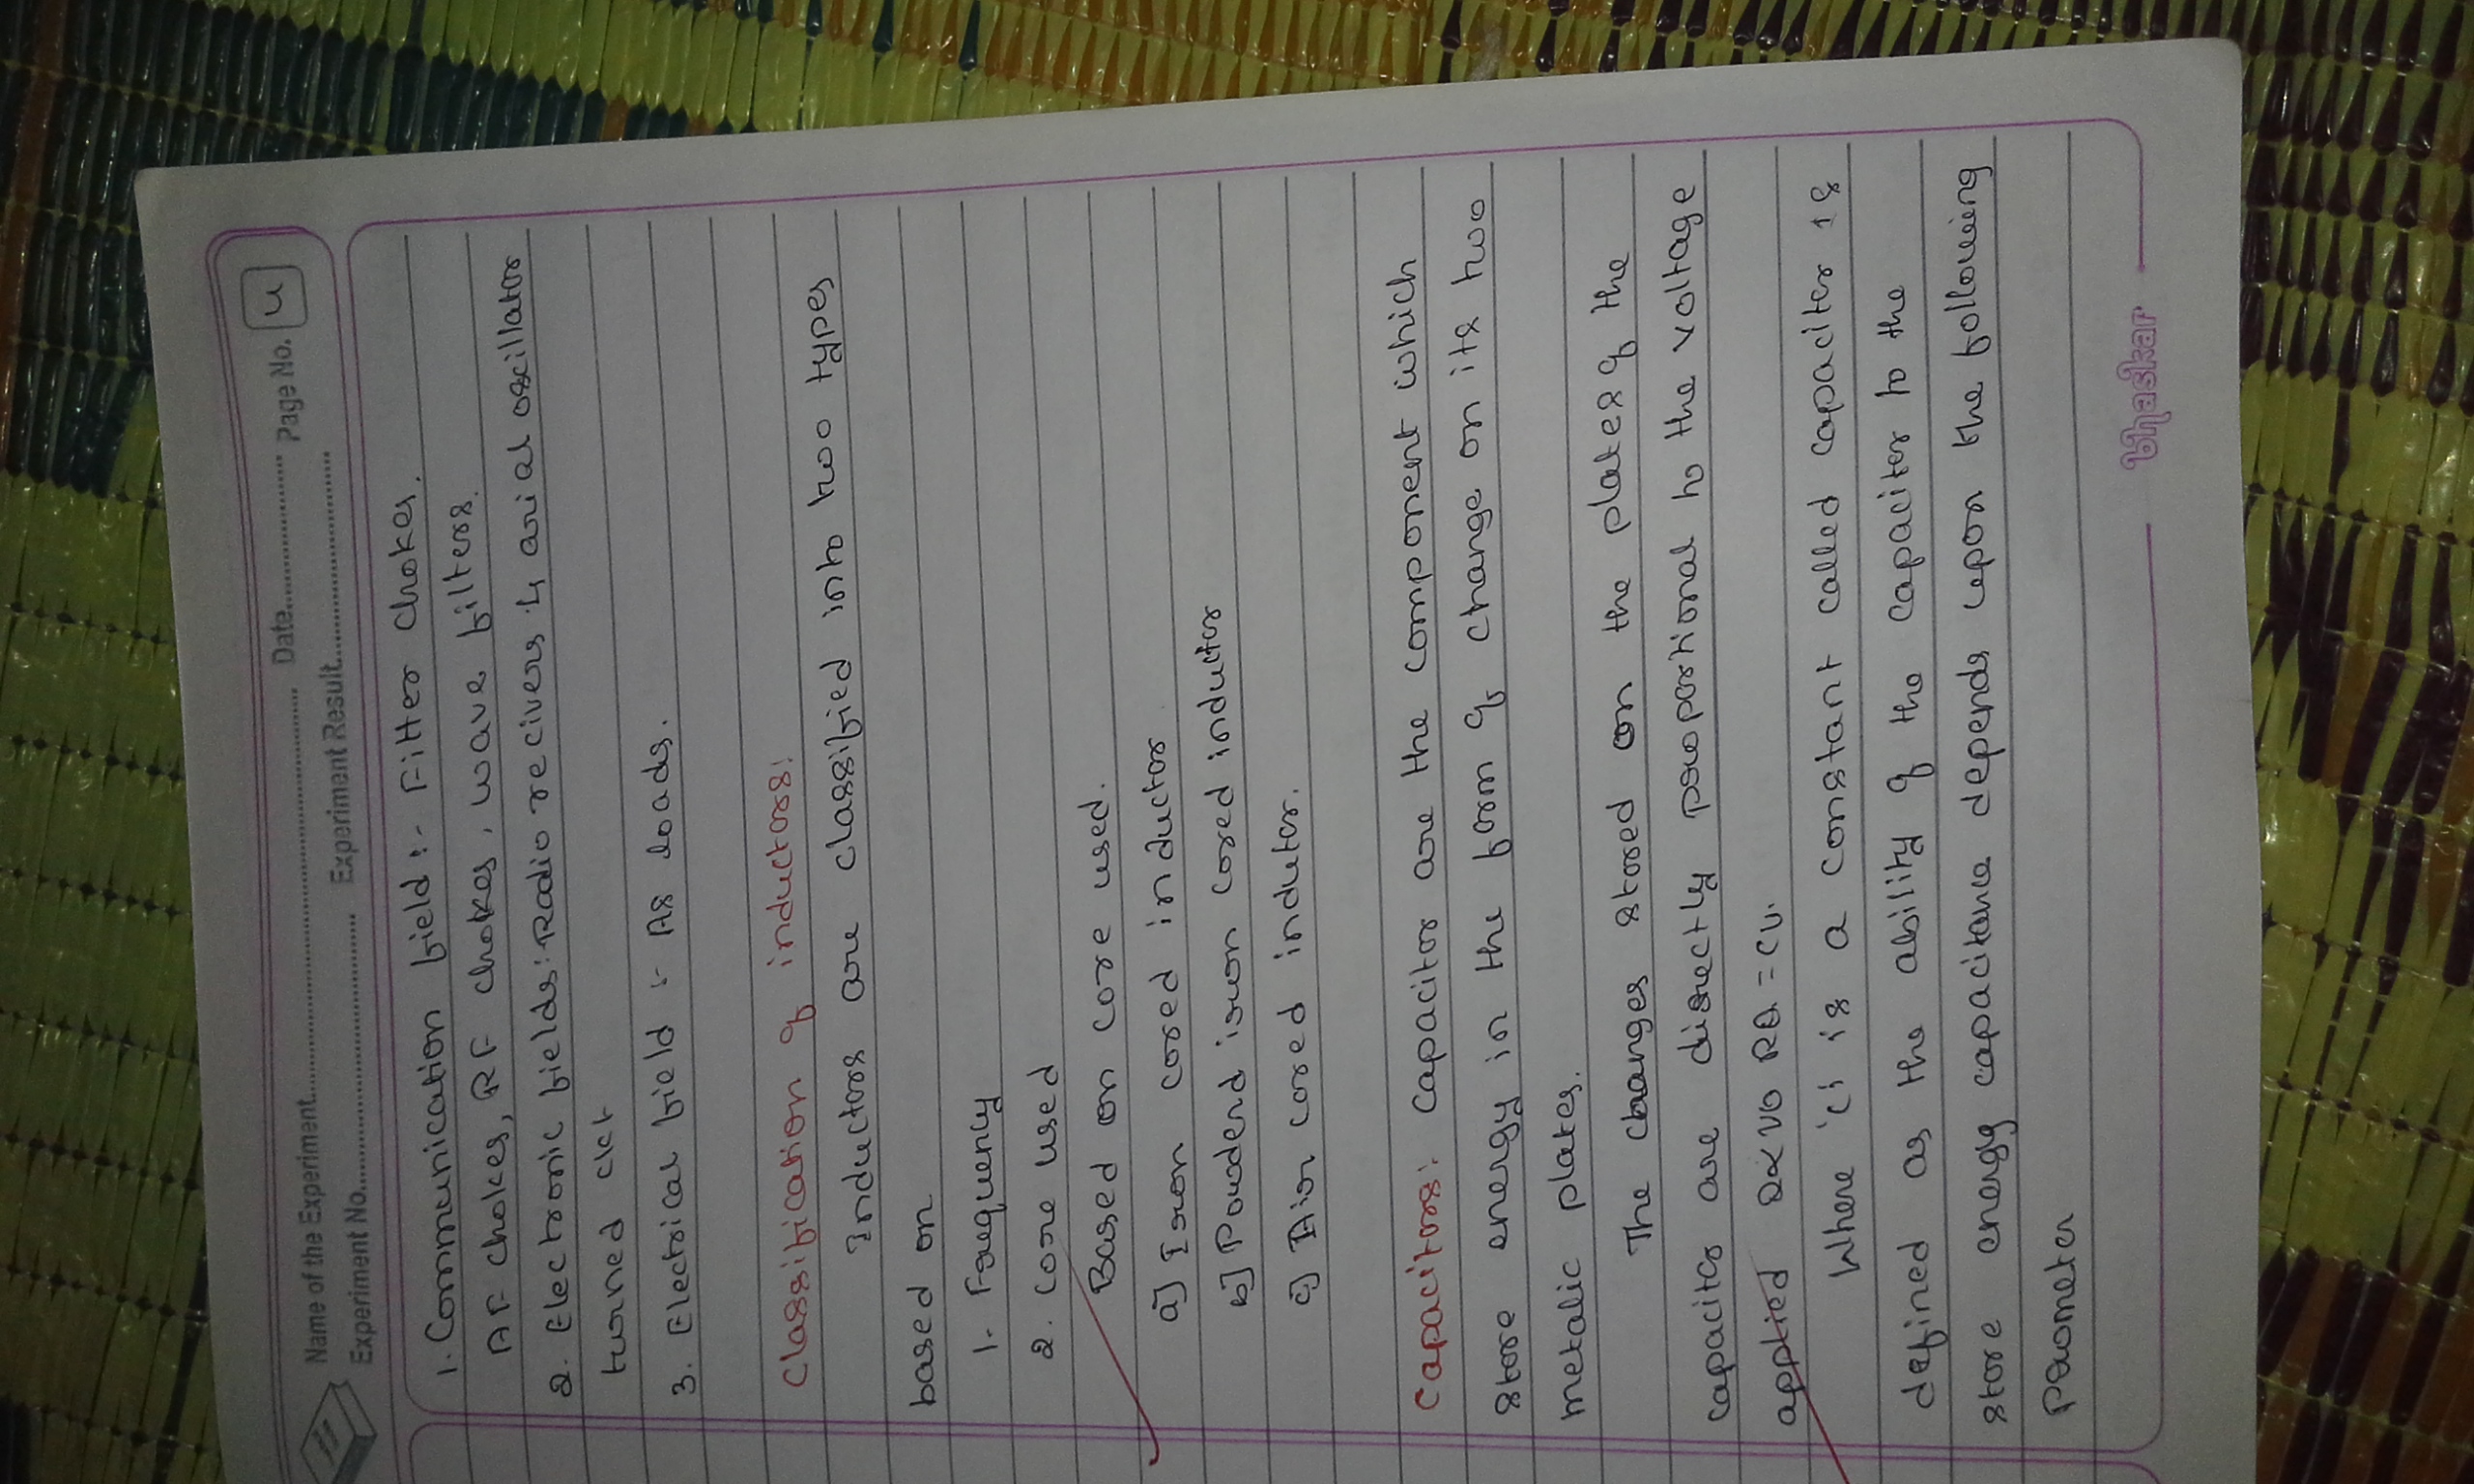 Name of the Experiment........ Date........ Page No. 4
Experiment No........ Experiment Result........
1. Communication field :- Filter chokes.
AF chokes, RF chokes, wave filters.
2. Electronic fields: Radio recivers, and oscillator
turned ckt
3. Electrical field :- As loads.
Classification of inductors:
Inductors are classified into two types
based on
1. Frequency
2. Core used
Based on core used.
a) Iron cored inductor
b) Powderd iron cored inductor
c) Air cored inductor.
Capacitors: Capacitor are the component which
store energy in the form of change on its two
metalic plates.
The changes stored on the plates of the
capacitor are directly proportional to the voltage
applied Q∝V Q = CV.
Where 'C' is a constant called capaciter is
defined as the ability of the capaciter to the
store energy capacitane depends upon the following
parometer
bhaskar